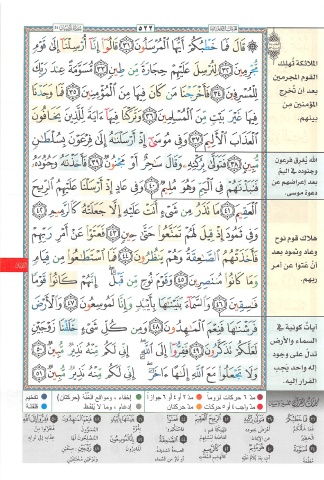 ٥٢٢
قَالَ فَمَا خَطْبُكُمْ أَيُّهَا الْمُرْسَلُونَ ٣١ قَالُوا إِنَّا أُرْسِلْنَا إِلَى قَوْمٍ
مُجْرِمِينَ ٣٢ لِنُرْسِلَ عَلَيْهِمْ حِجَارَةً مِنْ طِينٍ ٣٣ مُسَوَّمَةً عِنْدَ رَبِّكَ
لِلْمُسْرِفِينَ ٣٤ فَأَخْرَجْنَا مَنْ كَانَ فِيهَا مِنَ الْمُؤْمِنِينَ ٣٥ فَمَا وَجَدْنَا
فِيهَا غَيْرَ بَيْتٍ مِنَ الْمُسْلِمِينَ ٣٦ وَتَرَكْنَا فِيهَا آيَةً لِلَّذِينَ يَخَافُونَ
الْعَذَابَ الْأَلِيمَ ٣٧ وَفِي مُوسَى إِذْ أَرْسَلْنَاهُ إِلَى فِرْعَوْنَ بِسُلْطَانٍ
مُبِينٍ ٣٨ فَتَوَلَّى بِرُكْنِهِ وَقَالَ سَاحِرٌ أَوْ مَجْنُونٌ ٣٩ فَأَخَذْنَاهُ وَجُنُودَهُ
فَنَبَذْنَاهُمْ فِي الْيَمِّ وَهُوَ مُلِيمٌ ٤٠ وَفِي عَادٍ إِذْ أَرْسَلْنَا عَلَيْهِمُ الرِّيحَ
الْعَقِيمَ ٤١ مَا تَذَرُ مِنْ شَيْءٍ أَتَتْ عَلَيْهِ إِلَّا جَعَلَتْهُ كَالرَّمِيمِ ٤٢
وَفِي ثَمُودَ إِذْ قِيلَ لَهُمْ تَمَتَّعُوا حَتَّى حِينٍ ٤٣ فَعَتَوْا عَنْ أَمْرِ رَبِّهِمْ
فَأَخَذَتْهُمُ الصَّاعِقَةُ وَهُمْ يَنْظُرُونَ ٤٤ فَمَا اسْتَطَاعُوا مِنْ قِيَامٍ
وَمَا كَانُوا مُنْتَصِرِينَ ٤٥ وَقَوْمَ نُوحٍ مِنْ قَبْلُ إِنَّهُمْ كَانُوا قَوْمًا
فَاسِقِينَ ٤٦ وَالسَّمَاءَ بَنَيْنَاهَا بِأَيْدٍ وَإِنَّا لَمُوسِعُونَ ٤٧ وَالْأَرْضَ
فَرَشْنَاهَا فَنِعْمَ الْمَاهِدُونَ ٤٨ وَمِنْ كُلِّ شَيْءٍ خَلَقْنَا زَوْجَيْنِ
لَعَلَّكُمْ تَذَكَّرُونَ ٤٩ فَفِرُّوا إِلَى اللَّهِ إِنِّي لَكُمْ مِنْهُ نَذِيرٌ مُبِينٌ ٥٠
وَلَا تَجْعَلُوا مَعَ اللَّهِ إِلَهًا آخَرَ إِنِّي لَكُمْ مِنْهُ نَذِيرٌ مُبِينٌ ٥١
الملائكة تُهلك
القوم المجرمين
بعد أن تُخرج
المؤمنين من
بينهم.
الله يُغرق فرعون
وجنوده في اليمّ
بعد إعراضهم عن
دعوة موسى.
هلاك قوم نوح
وعاد وثمود بعد
أن عَتوا عن أمر
ربهم.
آيات كونية في
السماء والأرض
تدلّ على وجود
إله واحد يجب
الفرار إليه.